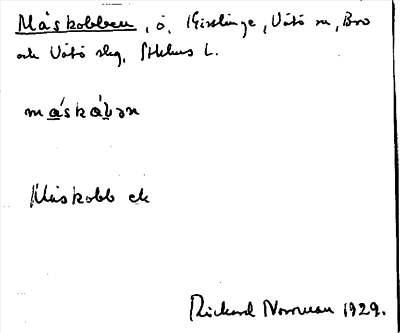 Måskobben, ö, Gisslinge, Vätö sn, Bro
och Vätö slg, Sthlms L.
måskåbən
Måskobb ck
Rickard Norrman 1929.